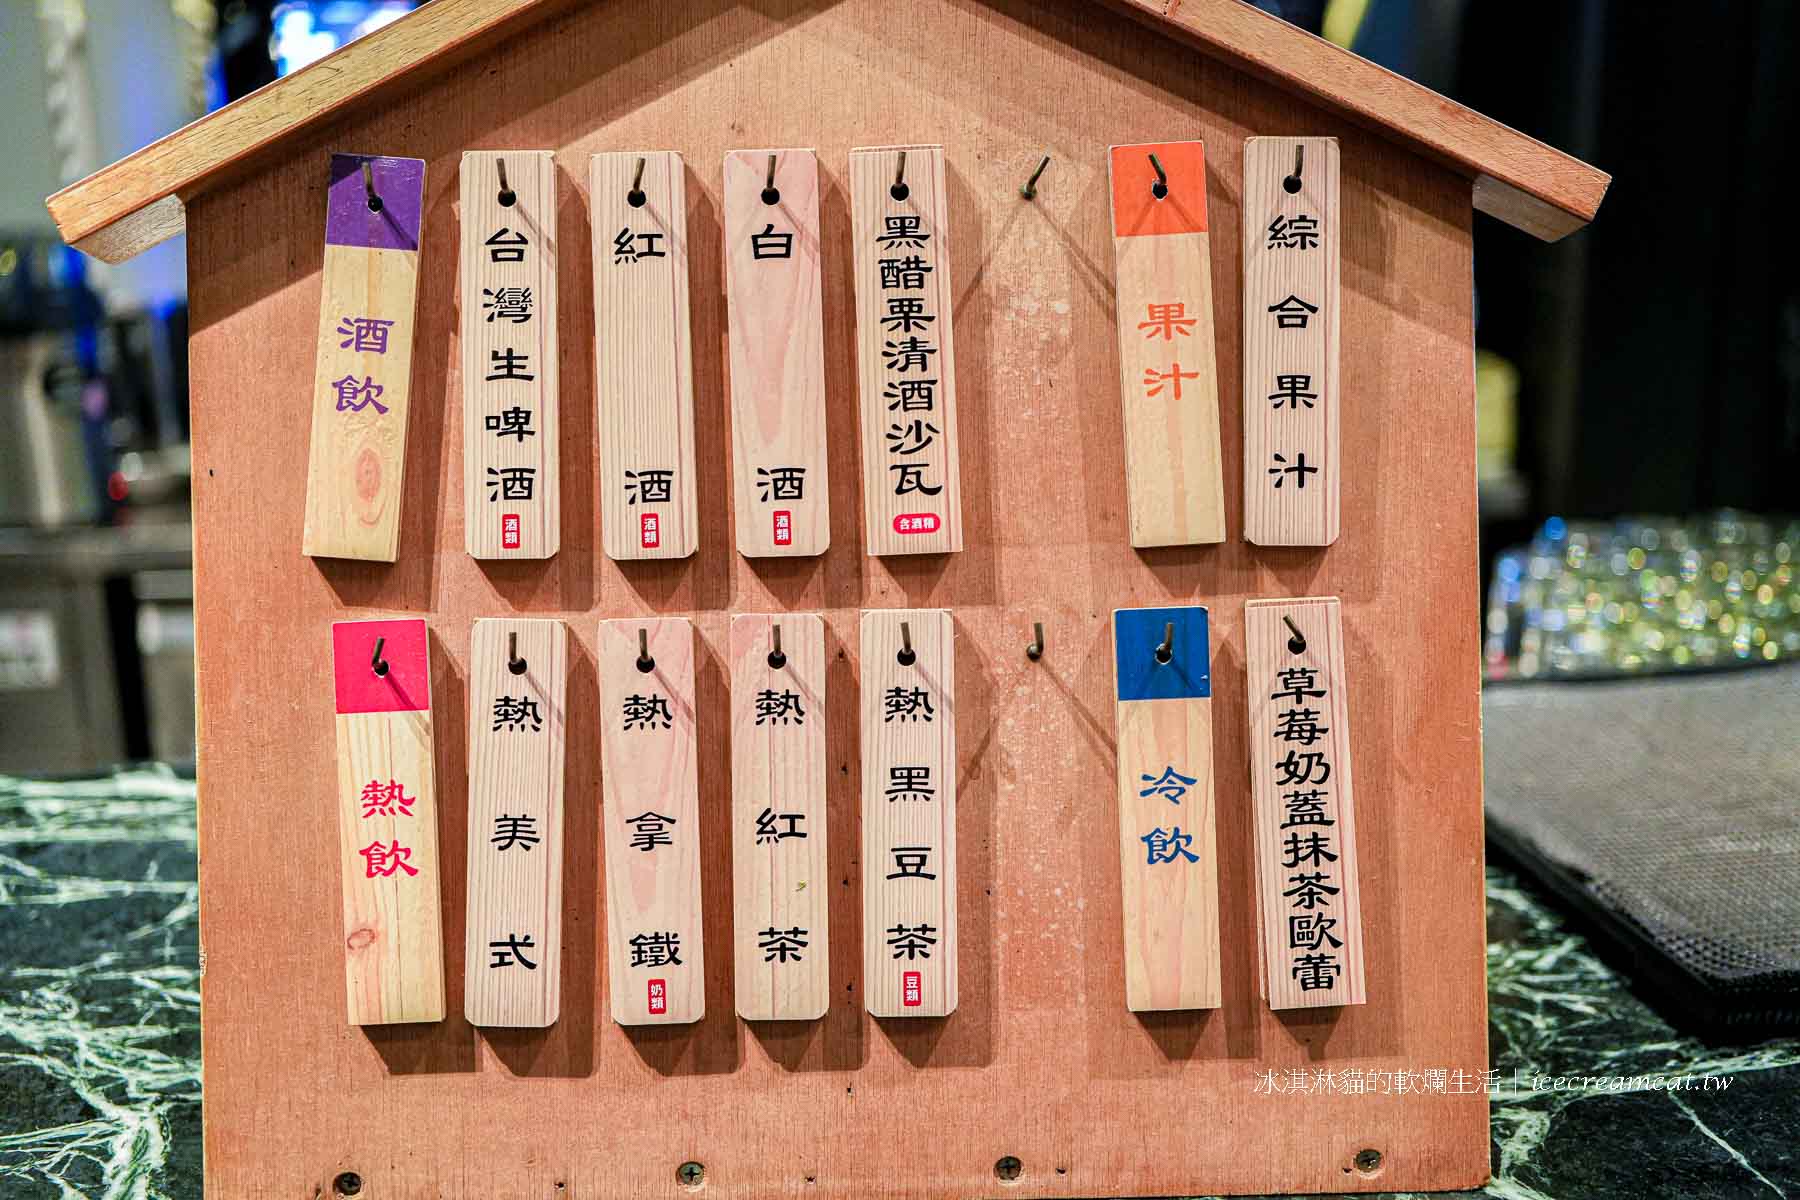 酒飲
台灣生啤酒
酒類
紅酒
酒類
白酒
酒類
黑醋栗清酒沙瓦
含酒精
果汁
綜合果汁
熱飲
熱美式
熱拿鐵
奶類
熱紅茶
熱黑豆茶
豆類
冷飲
草莓奶蓋抹茶歐蕾
冰淇淋貓的軟爛生活｜icecreamcat.tw